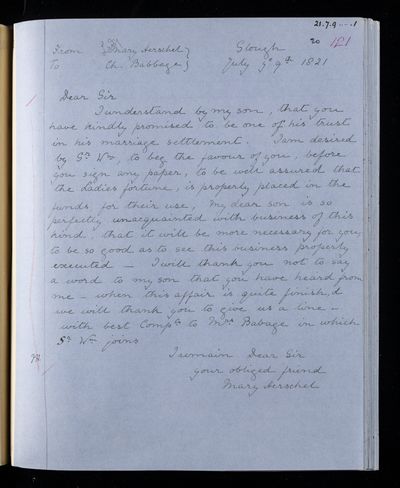 21.7.9....1
20 121
From Mary Herschel Slough
To Ch. Babbage July ye 9th 1821
Dear Sir
I understand by my son, that you
have kindly promised to be one of his trust
in his marriage settlement. I am desired
by Sr Wm, to beg the favour of you, before
you sign any paper, to be well assured that
the Ladies fortune, is properly placed in the
funds, for their use, My dear son is so
perfectly unacquainted with business of this
kind, that it will be more necessary for you,
to be so good as to see this business properly
executed — I will thank you not to say
a word to my son that you have heard from
me — when this affair is quite finish,d
we will thank you to give us a line —
with best Compts to Mrs Babage in which
Sr Wm joins
I remain Dear Sir
your obliged friend
Mary Herschel